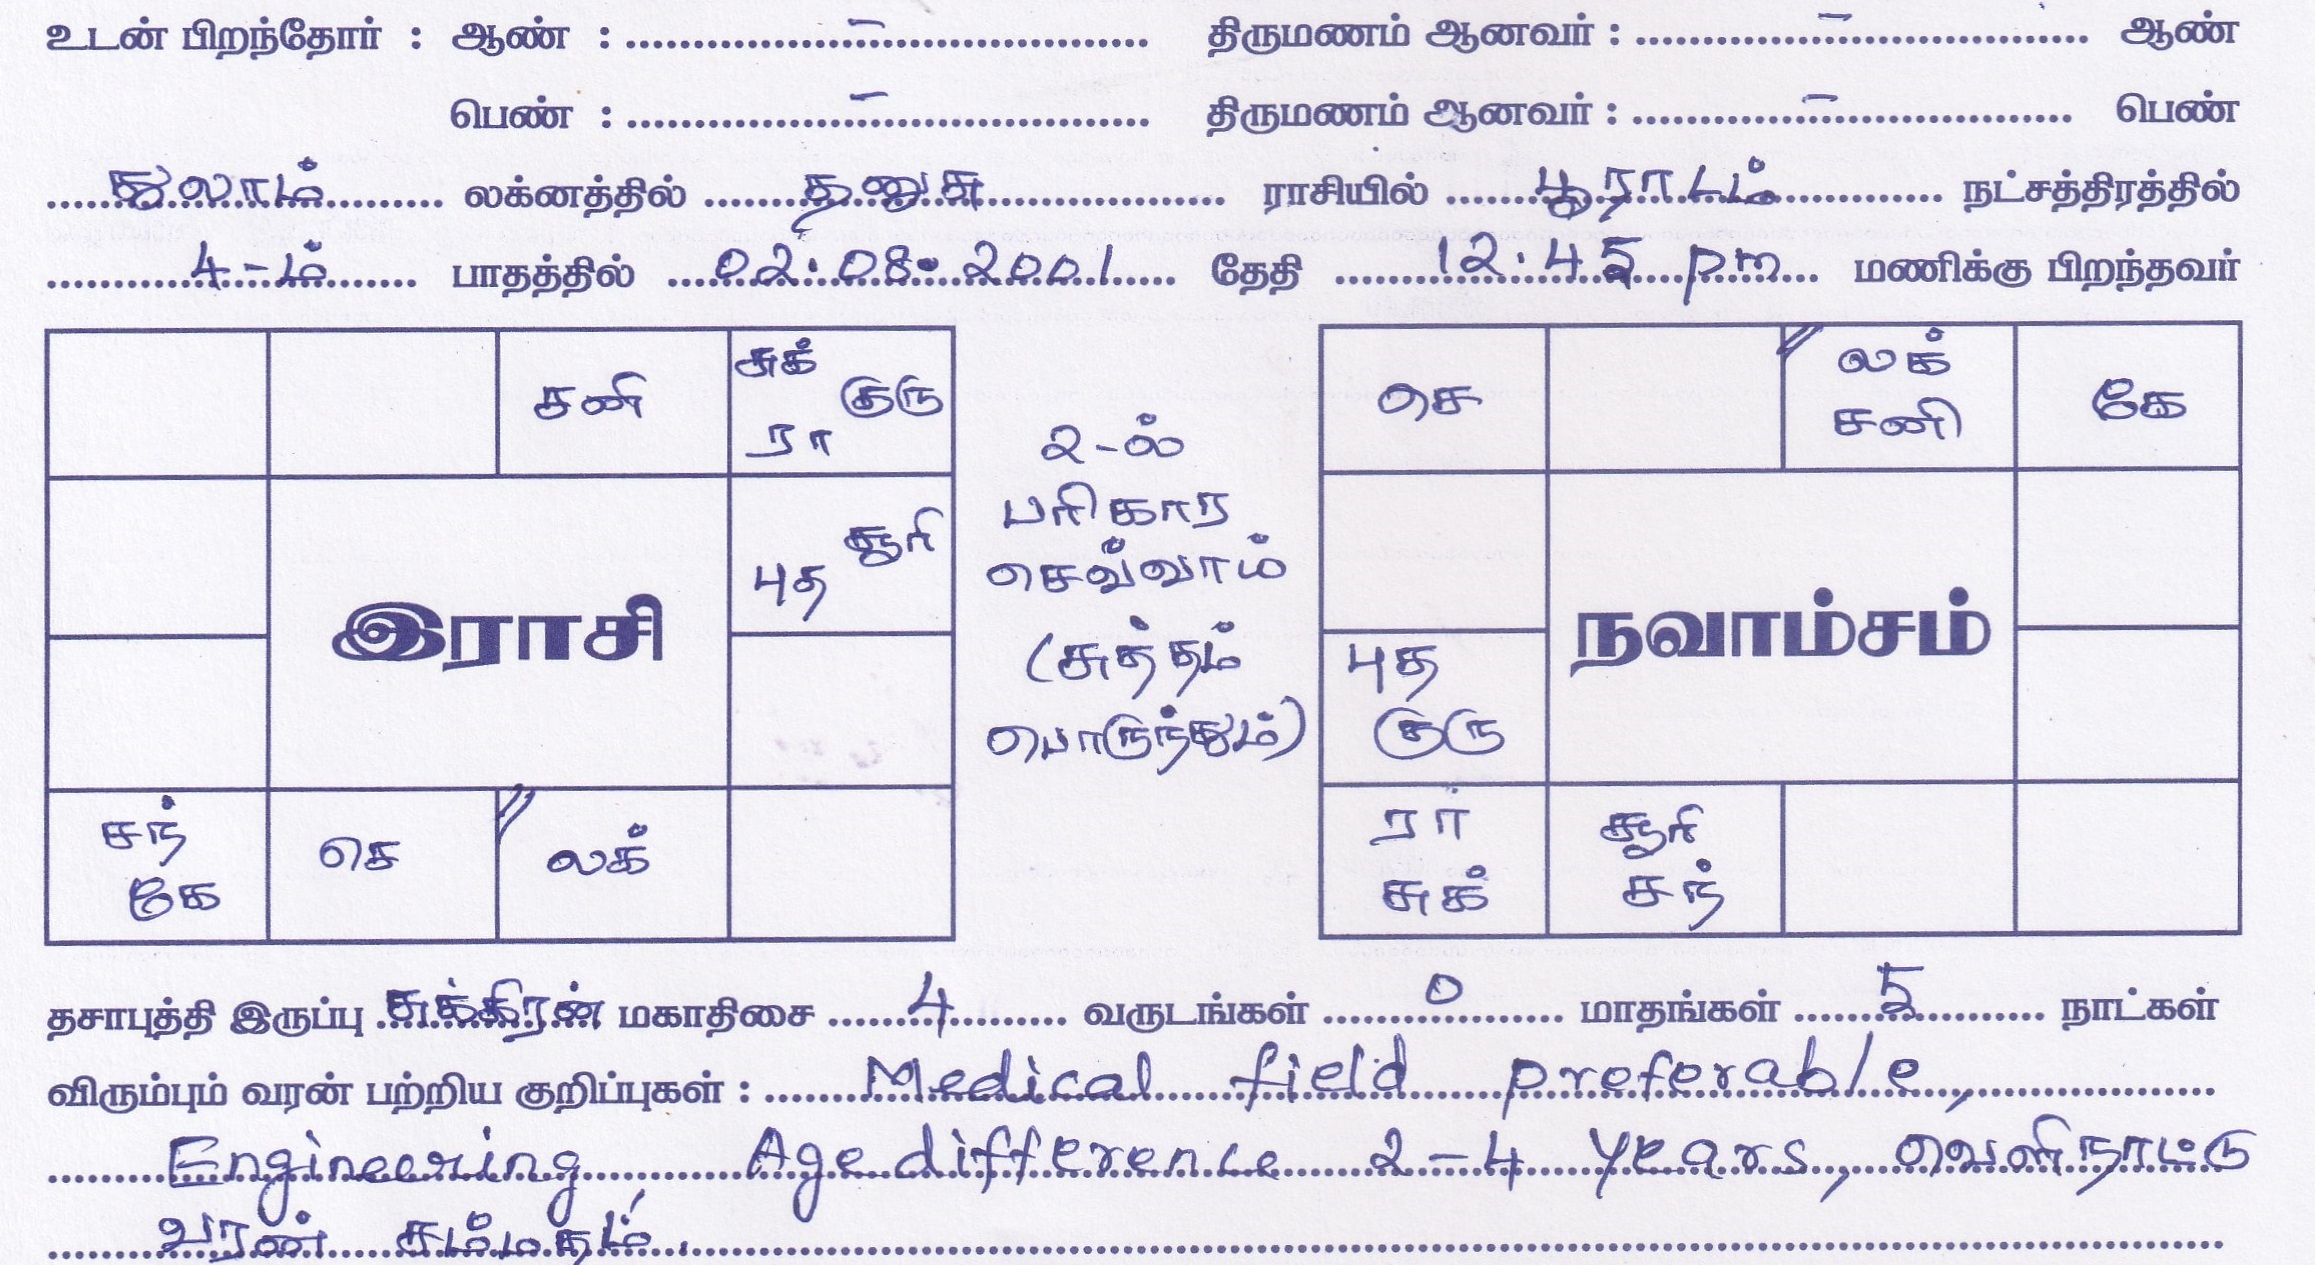 உடன் பிறந்தோர் : ஆண் : ........ – ........ திருமணம் ஆனவர் : ........ – ........ ஆண்
பெண் : ........ – ........ திருமணம் ஆனவர் : ........ – ........ பெண்
துலாம் லக்னத்தில் தனுசு ராசியில் பூராடம் நட்சத்திரத்தில்
4-ம் பாதத்தில் 02.08.2001 தேதி 12.45 pm மணிக்கு பிறந்தவர்
சனி
சுக் குரு
ரா
சூரி
புத
இராசி
சந்
கே
செ
லக்
2-ல்
பரிகார
செவ்வாய்
(சுத்தம்
பொருந்தும்)
செ
லக்
சனி
கே
நவாம்சம்
புத
குரு
ரா
சுக்
சூரி
சந்
தசாபுத்தி இருப்பு சுக்கிரன் மகாதிசை 4 வருடங்கள் 0 மாதங்கள் 5 நாட்கள்
விரும்பும் வரன் பற்றிய குறிப்புகள் : Medical field preferable,
Engineering Age difference 2-4 years, வெளிநாட்டு
வரன் சம்மதம்.